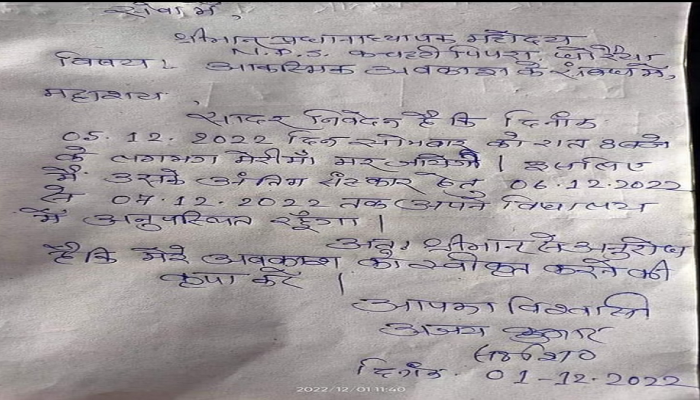 सेवा में,
श्रीमान प्रधानाध्यापक महोदय
N.P.S. कचहरी पिपरा
विषय: आकस्मिक अवकाश के संबंध में,
महाशय,
सादर निवेदन है कि दिनांक
05.12.2022 दिन सोमवार को रात 8 बजे
के लगभग मेरी माँ मर जायेगी। इसलिए
मैं उसके अंतिम संस्कार हेतु 06.12.2022
से 07.12.2022 तक अपने विद्यालय
में अनुपस्थित रहूँगा।
अतः श्रीमान से अनुरोध
है कि मेरे अवकाश को स्वीकृत करने की
कृपा करें।
आपका विश्वासी
अजय कुमार
दिनांक 01-12.2022
2022/12/01 11:40